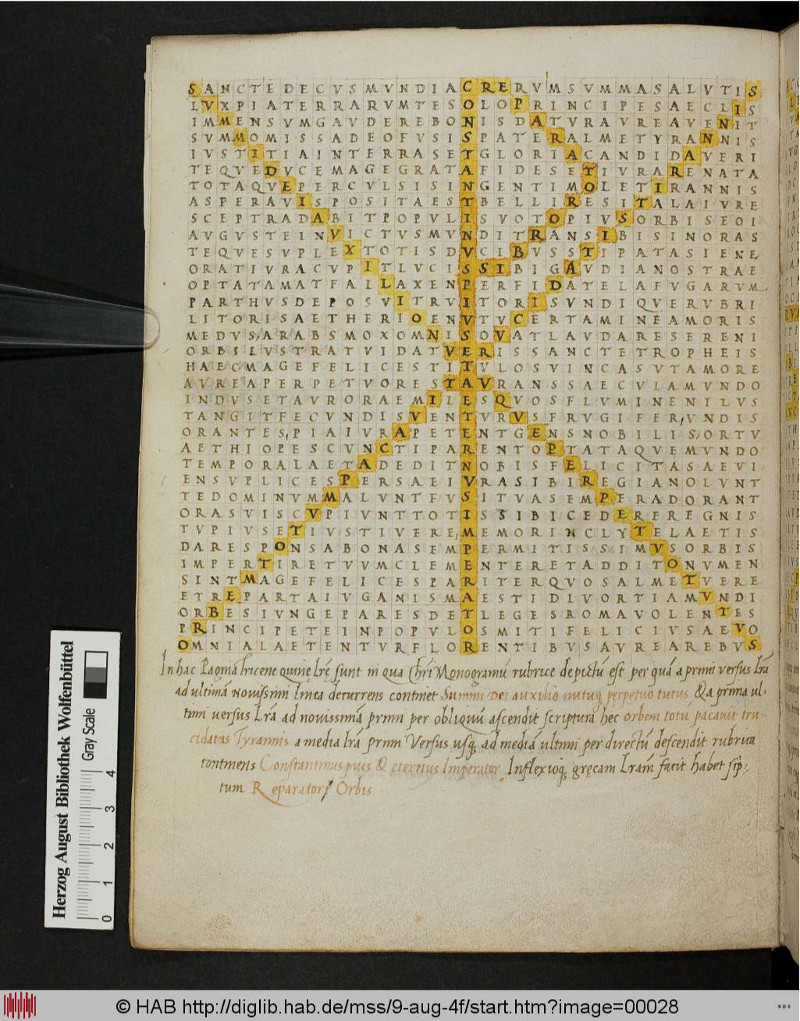 SANCTEDECVSMVNDIACRERVMSVMMASALVTIS
LVXPIATERRARVMTESOLOPRINCIPESAECLIS
IMMENSVMGAVDEREBONISDATVRAVREAVENIT
SVMMOMISSADEOFVSISPATERALMETYRANNIS
IVSTITIAINTERRASETGLORIACANDIDAVERI
TEQVEDVCEMAGEGRATAFIDESETIVRARENATA
TOTAQVEPERCVLSISINGENTIMOLETIRANNIS
ASPERAVISPOSITAESTBELLIRESITALAIVRE
SCEPTRADABITPOPVLISVOTOPIVSORBISEOI
AVGVSTEINVICTVSMVNDITRANSIBISINORAS
TEQVESVPLEXTOTISDVCIBVSSTIPATASIENE
ORATIVRACVPITLVCISSIBIGAVDIANOSTRAE
OPTATAMATFALLAXENPERFIDATELAFVGARVM
PARTHVSDEPOSVITRVITORISVNDIQVERVBRI
LITORISAETHERIOENVTVCERTAMINEAMORIS
MEDVSARABSMOXOMNISOVATLAVDARESERENI
ORBILVSTRATVIDATVERISSANCTETROPHEIS
HAECMAGEFELICESTITVLOSVINCASVTAMORE
AVREAPERPETVORESTAVRANSSAECVLAMVNDO
INDVSETAVRORAEMILESQVOSFLVMINENILVS
TANGITFECVNDISVENTVRVSFRVGIFERVNDIS
ORANTESPIAIVRAPETENTGENSNOBILISORTV
AETHIOPESCVNCTIPARENTOPTATAQVEMVNDO
TEMPORALAETADEDITNOBISFELICITASAEVI
ENSVPLICESPERSAEIVRASIBIREGIANOLVNT
TEDOMINVMMALVNTFVSITVASEMPERADORANT
ORASVISCVPIVNTTOTISSIBICEDEREREGNIS
TVPIVSETIVSTIVEREMEMORINCLYTELAETIS
DARESPONSABONASEMPERMITISSIMVSORBIS
IMPERTIRETVVMCLEMENTERETADDITONVMEN
SINTMAGEFELICESPARITERQVOSALMETVERE
ETREPARTAIVGANISMAESTIDIVORTIAMVNDI
ORBESIVNGEPARESDETLEGESROMAVOLENTES
PRINCIPETEINPOPVLOSMITIFELICIVSAEVO
OMNIALAETENTVRFLORENTIBVSAVREAREBVS
In hac Pagina tricene quine lr̃e sunt in qua Chri Monogramũ rubrice depictũ est per quã a primi versus lr̃a
ad ultimã novissimi linea decurrens continet Summi Dei auxilio nutuq perpetuo tutus, & a prima ul-
timi versus lr̃a ad novissimã primi per obliquũ ascendit scriptura hec orbem totũ pacavit tru-
cidatis Tyrannis a media lr̃a primi Versus usq ad mediã ultimi per directũ descendit rubrica
continens Constantinus pius & eternus Imperator. Inflexioq, grecam lr̃am facit habet sip-
tum Reparator Orbis
Herzog August Bibliothek Wolfenbüttel
Gray Scale
0 1 2 3 4
© HAB http://diglib.hab.de/mss/9-aug-4f/start.htm?image=00028